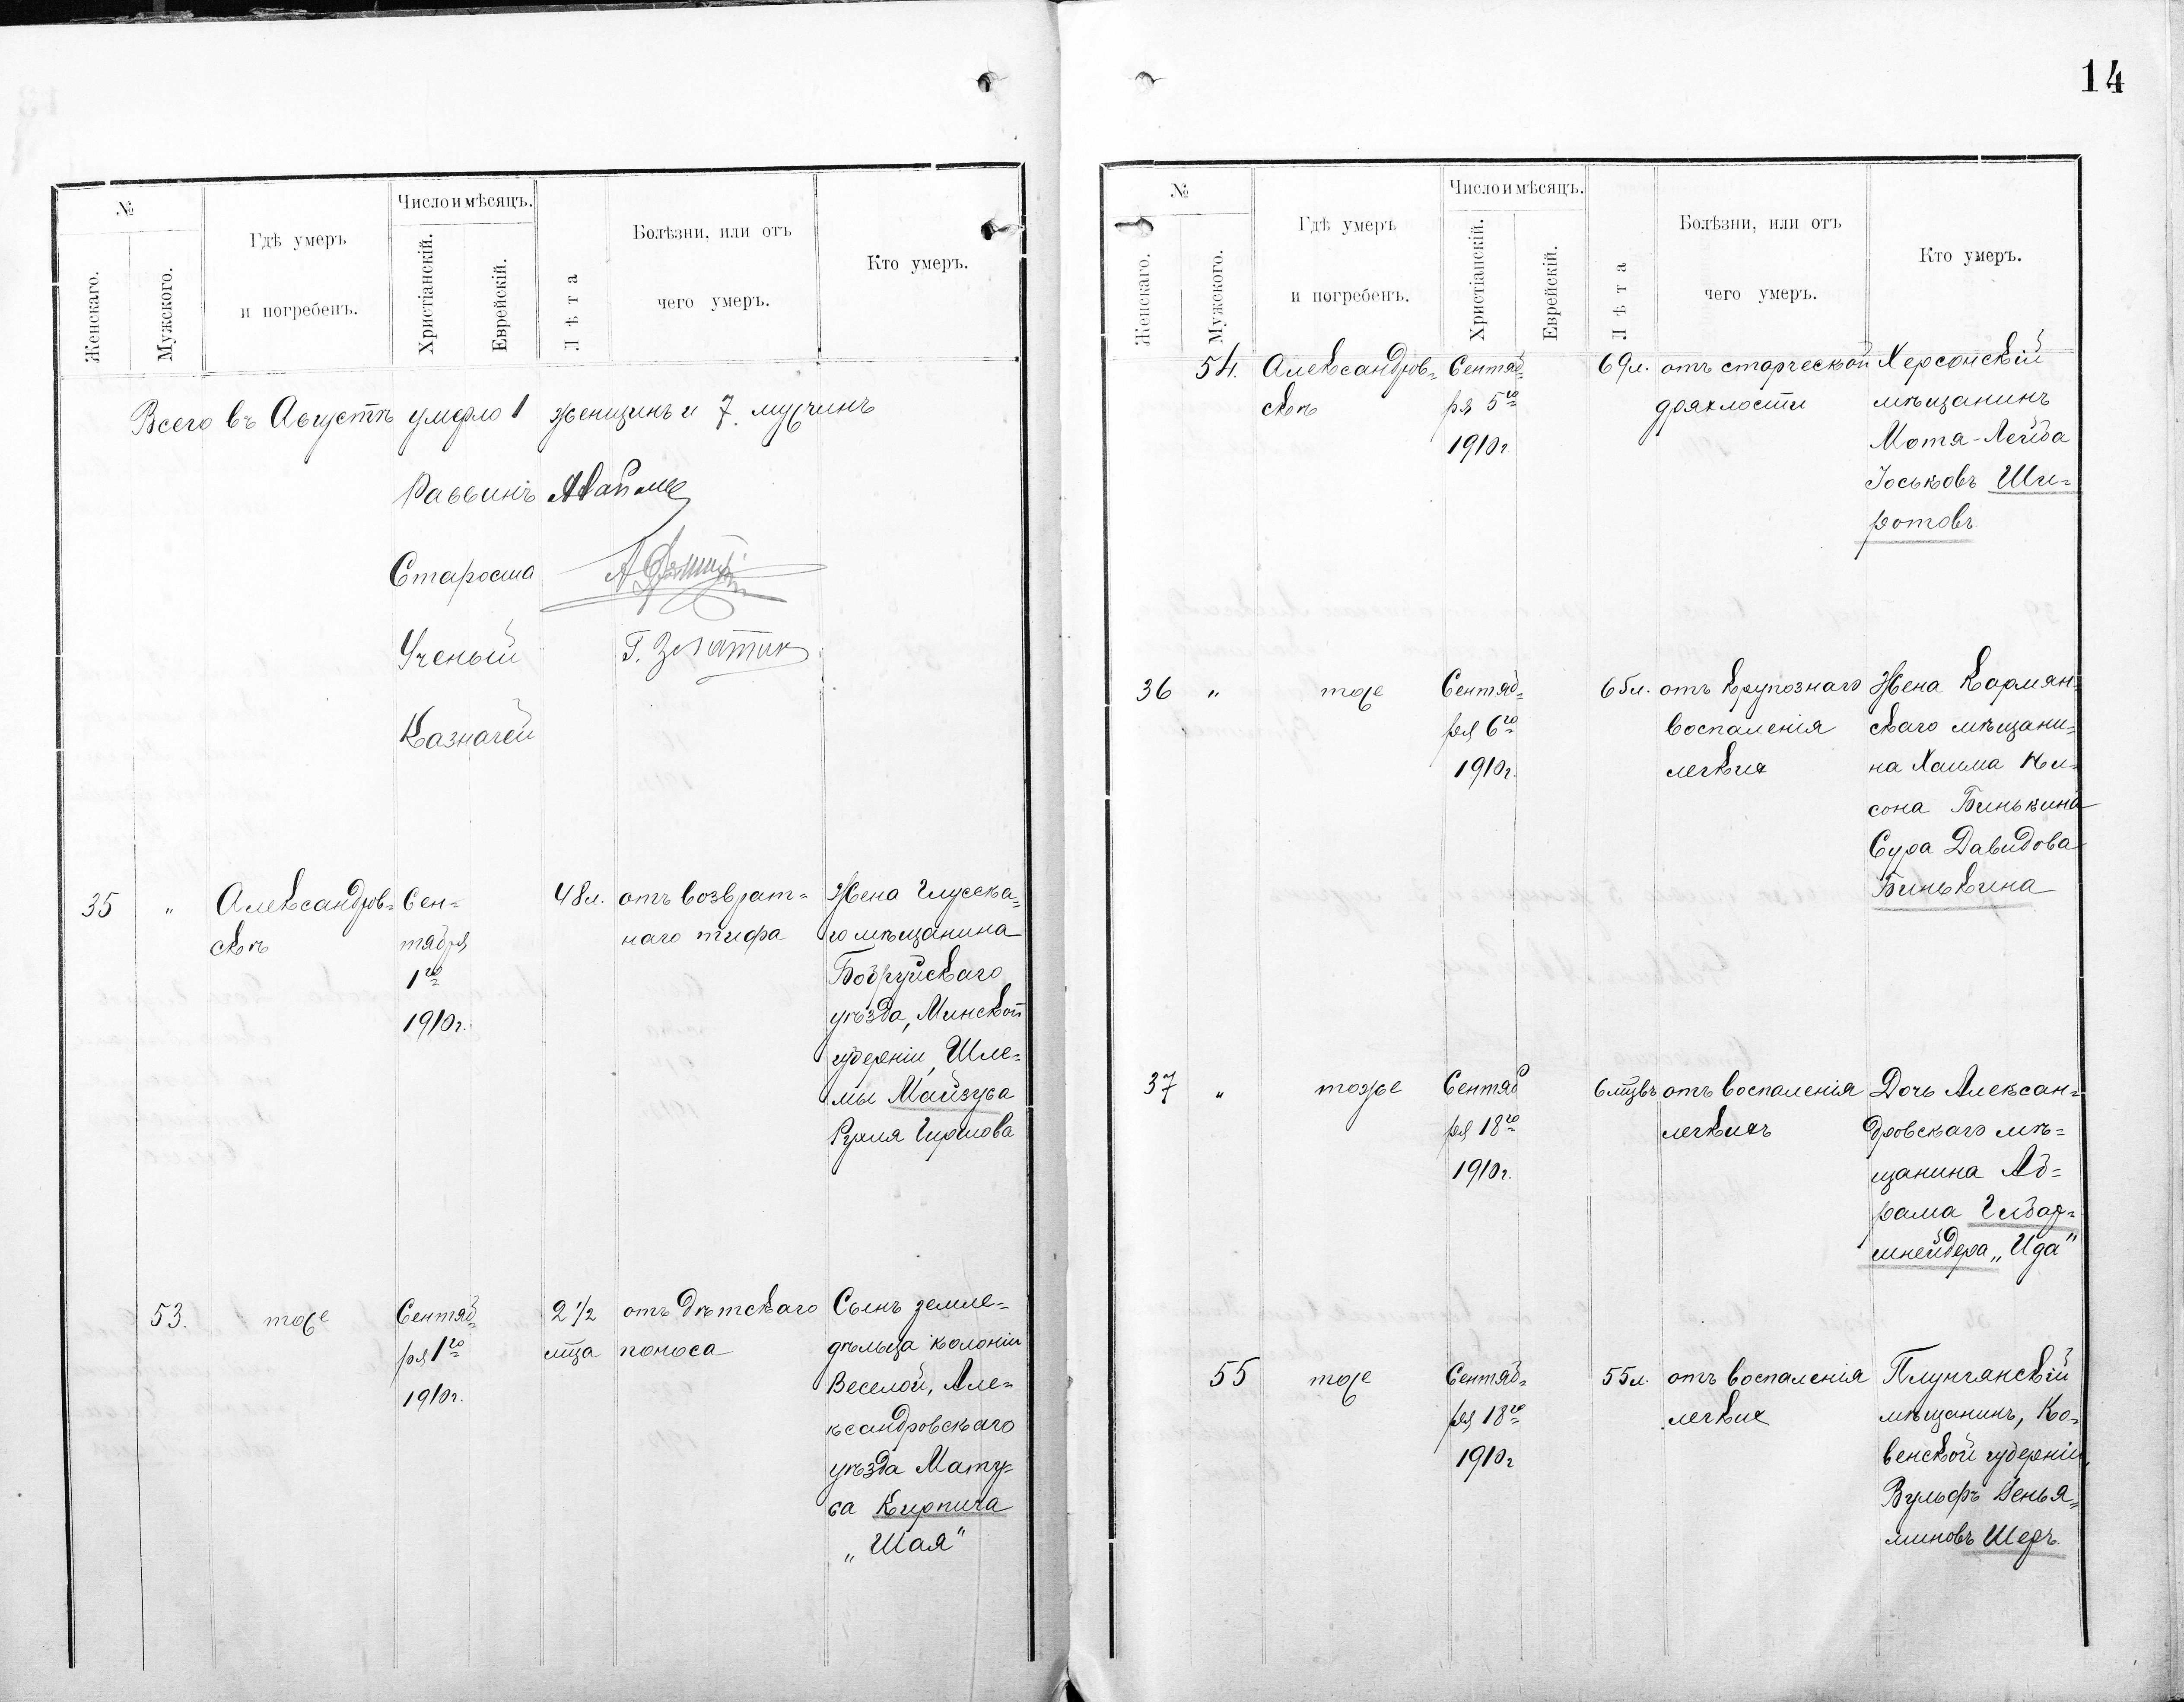 №
Женскаго.
Мужского.
Гдѣ умеръ
и погребенъ.
Число и мѣсяцъ.
Христіанскій.
Еврейскій.
Лѣта
Болѣзни, или отъ
чего умеръ.
Кто умеръ.
Всего въ Августѣ умерло 1 женщинъ и 7 мущинъ
Раввинъ
Староста
Ученый
Казначей
35 „
Александров=
скѣ
Сен=
тября
1го
1910г.
48л.
отъ возврат=
наго тифа
Жена Глусска=
го мѣщанина
Бобруйскаго
уѣзда, Минской
губерніи, Шле=
мы Майзуса
Рухля Гиршова
53.
тоже
Сентяб=
ря 1го
1910г.
2 1/2
мѣца
отъ дѣтскаго
поноса
Сынъ земле=
дѣльца колоніи
Веселой, Але=
ксандровскаго
уѣзда Мату=
са Кирпича
„Шая"
14
№
Женскаго.
Мужского.
Гдѣ умеръ
и погребенъ.
Число и мѣсяцъ.
Христіанскій.
Еврейскій.
Лѣта
Болѣзни, или отъ
чего умеръ.
Кто умеръ.
54.
Александров=
скѣ
Сентяб=
ря 5го
1910г
69л.
отъ старческой
дряхлости
Херсонскій
мѣщанинъ
Мотя-Лейба
Іоськовъ Ши=
ротовъ
36 „
тоже
Сентяб=
ря 6го
1910г.
65л.
отъ крупознаго
воспаленія
легкихъ
Жена
скаго мѣщани=
на Хаима Ни=
сона Бинькина
Сура Давидова
Бинькина
37 „
тоже
Сентяб
ря 18го
1910г.
6 мѣцвъ
отъ воспаленія
легкихъ
Дочь Алексан=
дровскаго мѣ=
щанина Аб=
рама
шнейдера „Ида"
55
тоже
Сентяб=
ря 18го
1910г
55л.
отъ воспаленія
легких
Плунгянскій
мѣщанинъ, Ко=
венской губерніи,
Вульфъ Бенья=
миновъ Шеръ